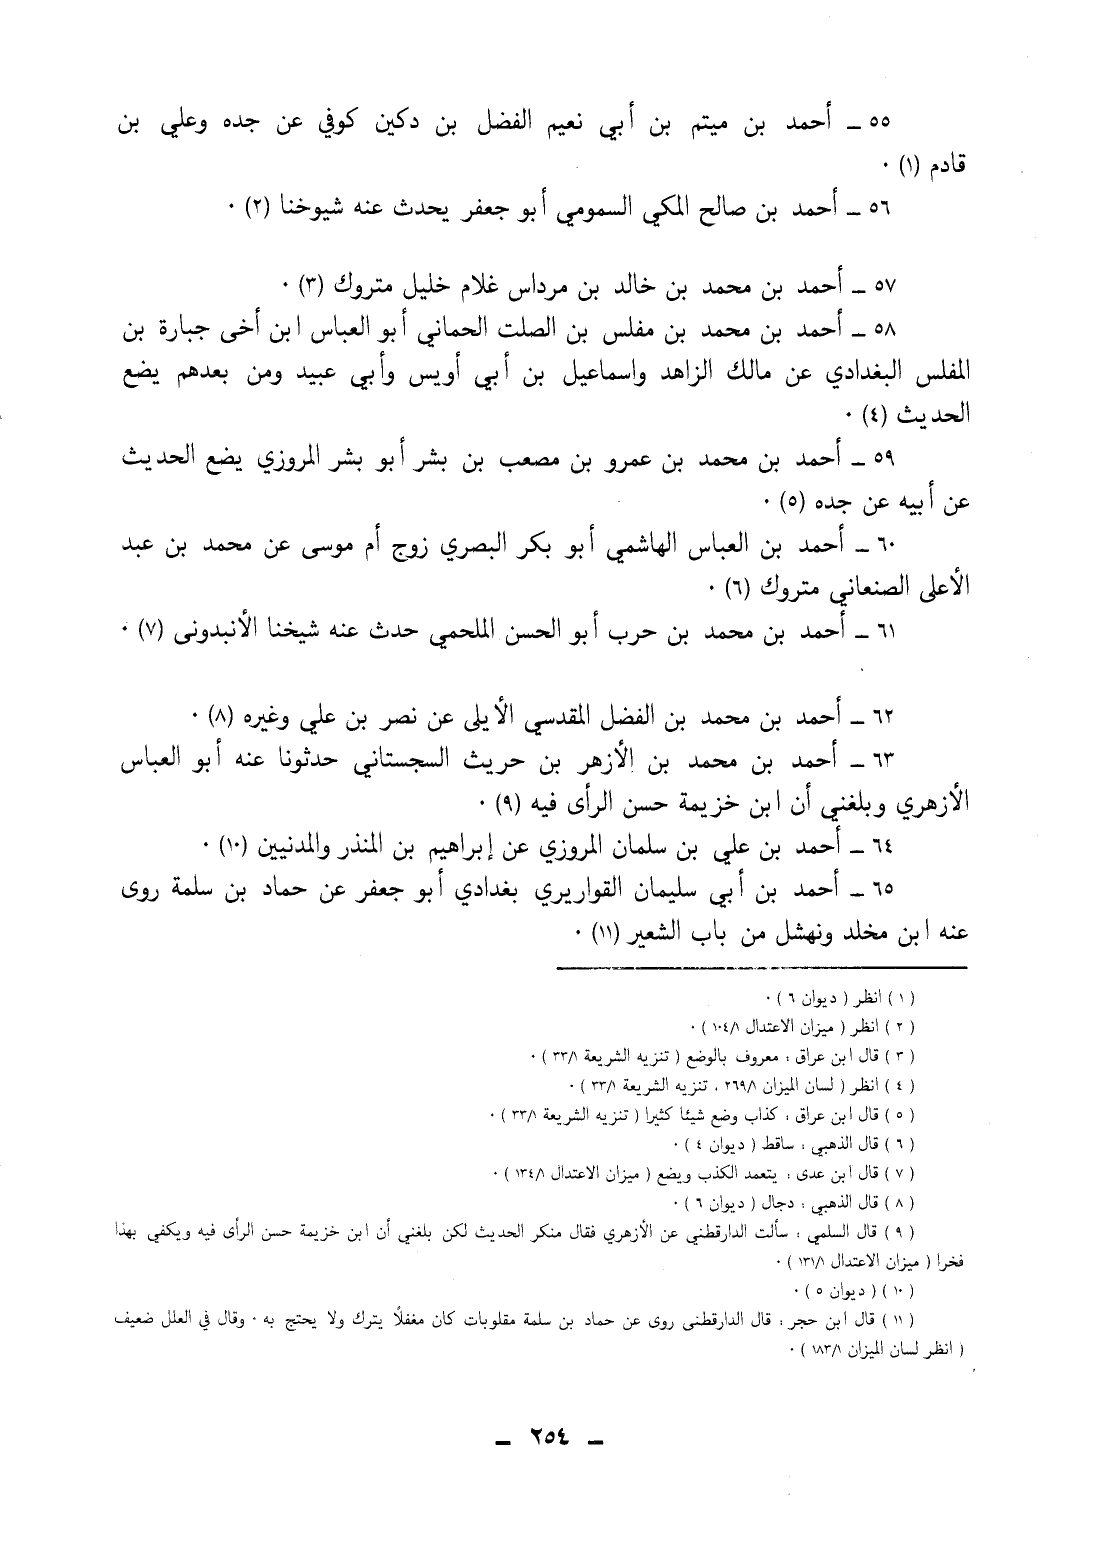 ٥٥ ــ أحمد بن ميتم بن أبي نعيم الفضل بن دكين كوفي عن جده وعلي بن
قادم (١) ٠
٥٦ ــ أحمد بن صالح المكي السمومي أبو جعفر يحدث عنه شيوخنا (٢) ٠
٥٧ ــ أحمد بن محمد بن خالد بن مرداس غلام خليل متروك (٣) ٠
٥٨ ــ أحمد بن محمد بن مفلس بن الصلت الحماني أبو العباس ابن أخى جبارة بن
المفلس البغدادي عن مالك الزاهد واسماعيل بن أبي أويس وأبي عبيد ومن بعدهم يضع
الحديث (٤) ٠
٥٩ ــ أحمد بن محمد بن عمرو بن مصعب بن بشر أبو بشر المروزي يضع الحديث
عن أبيه عن جده (٥) ٠
٦٠ ــ أحمد بن العباس الهاشمي أبو بكر البصري زوج أم موسى عن محمد بن عبد
الأعلى الصنعاني متروك (٦) ٠
٦١ ــ أحمد بن محمد بن حرب أبو الحسن الملحمي حدث عنه شيخنا الأنبدونى (٧) ٠
٦٢ ــ أحمد بن محمد بن الفضل المقدسي الأيلى عن نصر بن علي وغيره (٨) ٠
٦٣ ــ أحمد بن محمد بن الأزهر بن حريث السجستاني حدثونا عنه أبو العباس
الأزهري وبلغني أن ابن خزيمة حسن الرأى فيه (٩) ٠
٦٤ ــ أحمد بن علي بن سلمان المروزي عن إبراهيم بن المنذر والمدنيين (١٠) ٠
٦٥ ــ أحمد بن أبي سليمان القواريري بغدادي أبو جعفر عن حماد بن سلمة روى
عنه ابن مخلد ونهشل من باب الشعير (١١) ٠
( ١ ) انظر ( ديوان ٦ ) ٠
( ٢ ) انظر ( ميزان الاعتدال ١٠٤/١ ) ٠
( ٣ ) قال ابن عراق : معروف بالوضع ( تنزيه الشريعة ٣٣/١ ) ٠
( ٤ ) انظر ( لسان الميزان ٢٦٩/١ ، تنزيه الشريعة ٣٣/١ ) ٠
( ٥ ) قال ابن عراق : كذاب وضع شيئا كثيرا ( تنزيه الشريعة ٣٣/١ ) ٠
( ٦ ) قال الذهبي : ساقط ( ديوان ٤ ) ٠
( ٧ ) قال ابن عدى : يتعمد الكذب ويضع ( ميزان الاعتدال ١٣٤/١ ) ٠
( ٨ ) قال الذهبي : دجال ( ديوان ٦ ) ٠
( ٩ ) قال السلمي : سألت الدارقطني عن الأزهري فقال منكر الحديث لكن بلغني أن ابن خزيمة حسن الرأى فيه ويكفي بهذا
فخرا ( ميزان الاعتدال ١٣١/١ ) ٠
( ١٠ ) ( ديوان ٥ ) ٠
( ١١ ) قال ابن حجر : قال الدارقطنى روى عن حماد بن سلمة مقلوبات كان مغفلًا يترك ولا يحتج به ٠ وقال في العلل ضعيف
( انظر لسان الميزان ١٨٣/١ ) ٠
ــ ٢٥٤ ــ